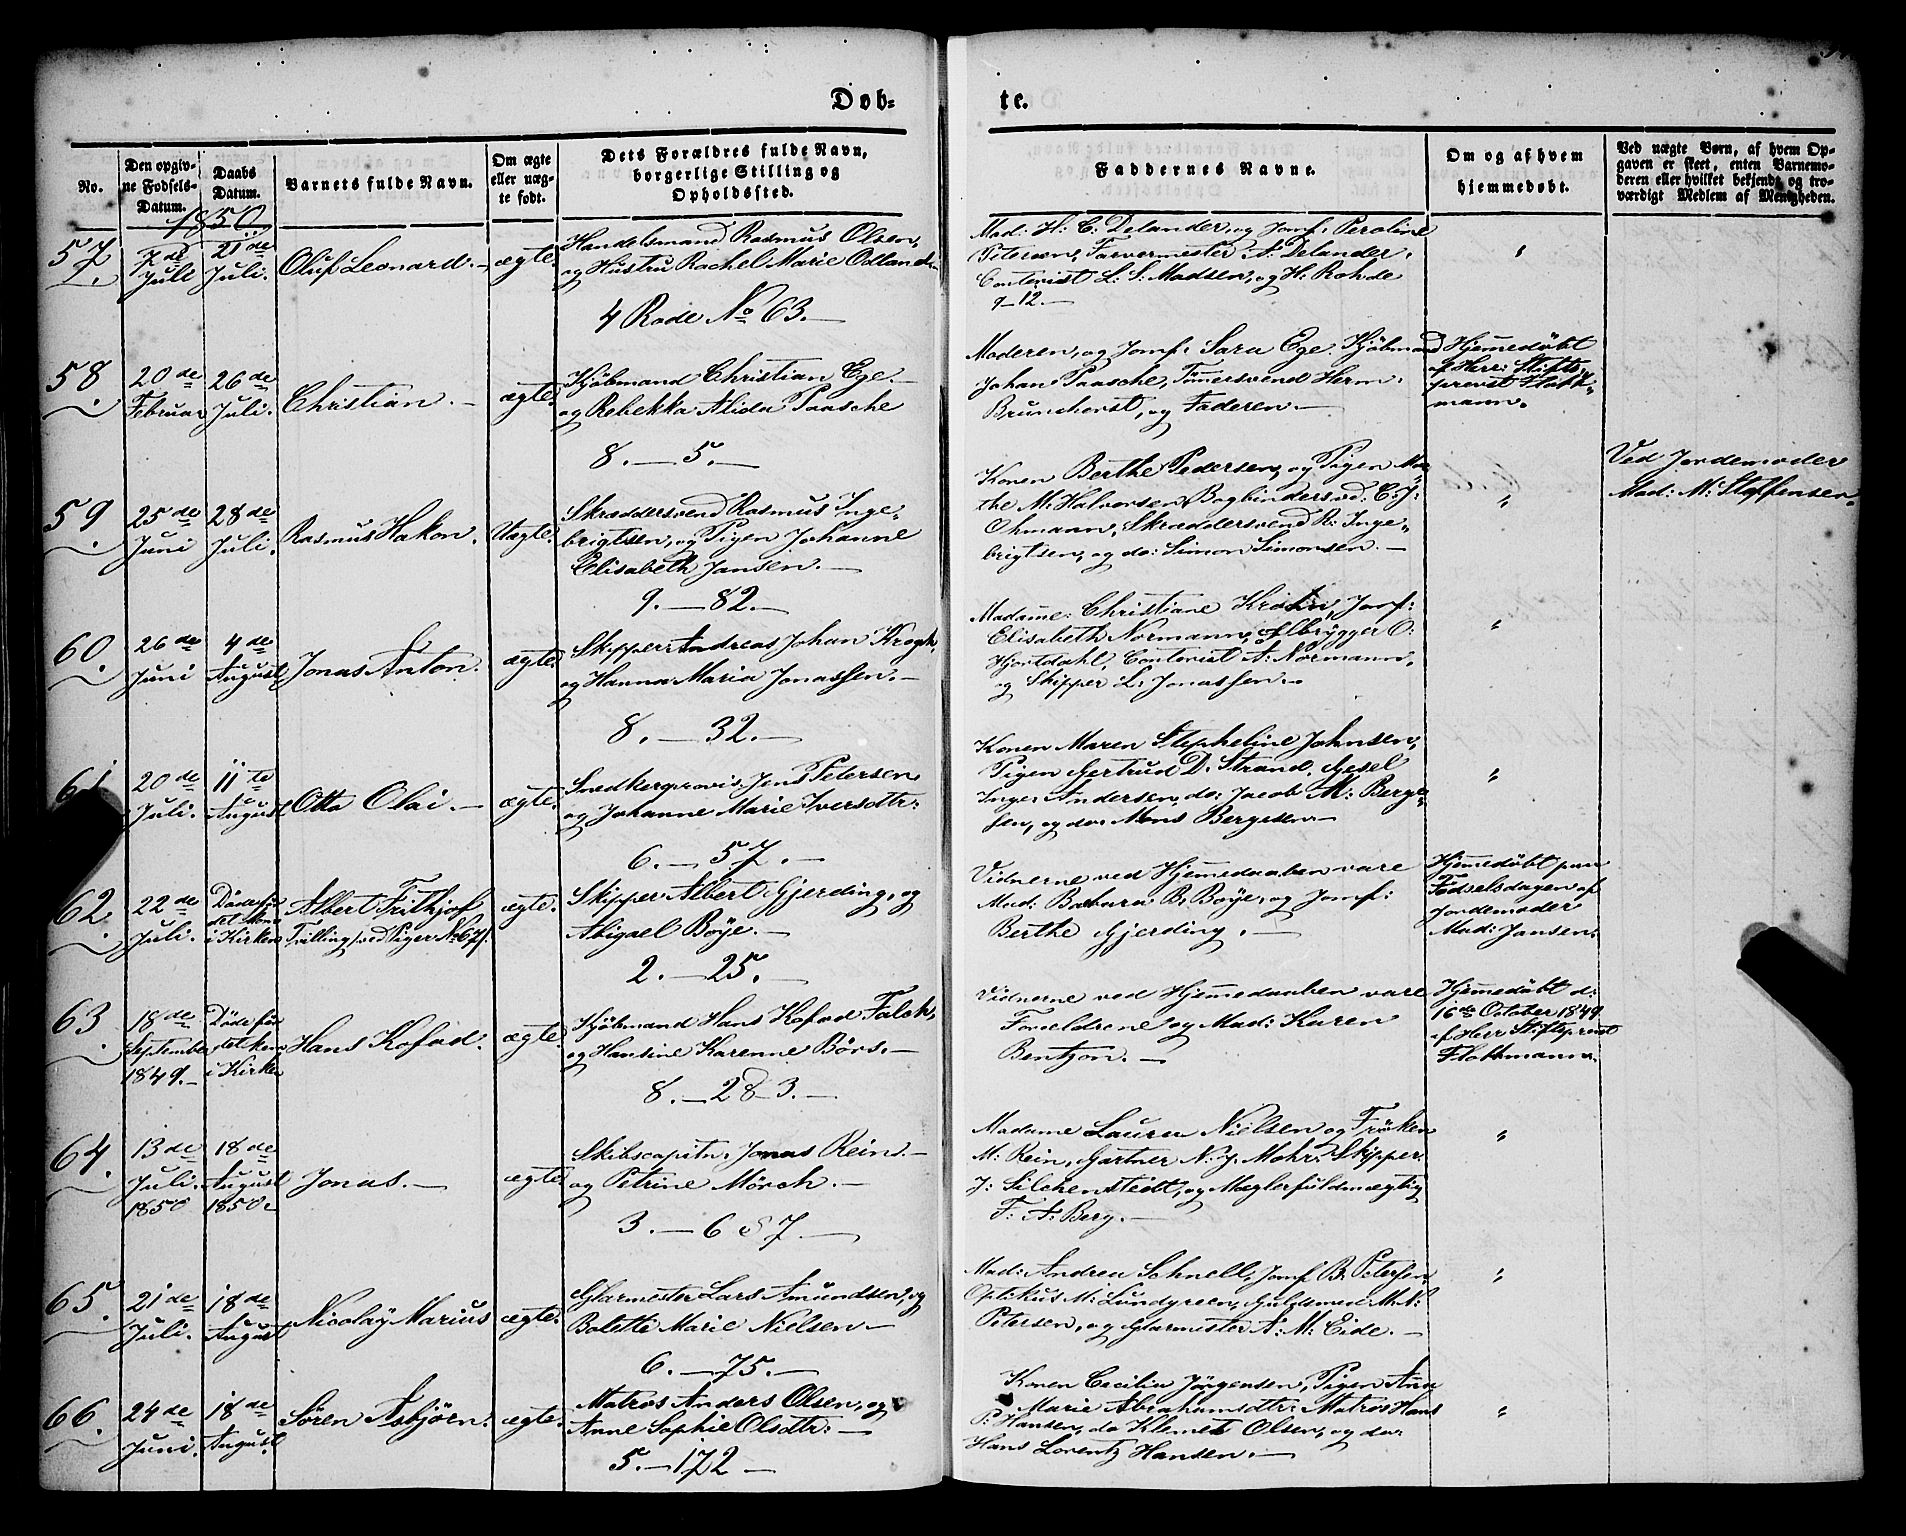 Døb-
te.
No.
Den opgiv-
ne Fødsels-
Datum.
Daabs
Datum.
Barnets fulde Navn.
Om ægte
eller uæg-
te født.
Dets Forældres fulde Navn,
borgerlige Stilling og
Opholdssted.
Faddernes Navne.
Om og af hvem
hjemmedøbt.
Ved uægte Børn, af hvem Op-
gaven er skeet, enten Barnemo-
deren eller hvilket bekjendt og tro-
værdigt Medlem af Menigheden.
1850.
57.
7de
Juli
21de
Juli.
Oluf Leonard.
ægte.
Handelsmand Rasmus Olsen,
og Hustru Rachel Marie Odland
4 Rode No 63.
Mad: H: C: Delander, og Jomf: Peroline
Petersen, Farvermester A: Delander,
Contorist L: S: Madsen, og H: Rohde
9-12.
"
58.
20de
Februar
26de
Juli.
Christian.
ægte.
Kjöbmand Christian Ege
og Rebekka Alida Paasche
8. — 5.
Moderen, og Jomf: Sara Ege, Kjöbmand
Johan Paasche, Tömersvend Herm:
Brunchorst, og Faderen.
Hjemmedöbt
af Herr: Stifts-
provst Flott-
mann.
59.
25de
Juni
28de
Juli.
Rasmus Hakon.
Uægte.
Skræddersvend Rasmus Inge-
brigtsen, og Pigen Johanne
Elisabeth Jansen.
9. — 82.
Konen Berthe Pedersen, og Pigen Mar-
the M: Halvorsen, Bogbindersvd: C: J:
Ohmann, Skræddersvend R: Inge-
brigtsen, og do: Simon Simonsen.
"
Ved Jordemoder
Mad: M: Steffensen.
60.
26de
Juni
4de
August
Jonas Anton.
ægte.
Skipper Andreas Johan Krogh,
og Hanna Maria Jonassen.
8. — 32.
Madame: Christiane Krohn, Jomf:
Elisabeth Normann, Ølbrygger O:
Hjortdahl, Contorist A: Normann,
og Skipper L: Jonassen.
"
61
20de
Juli.
11te
August
Otto Olai.
ægte.
Snedkerprovis: Jens Petersen
og Johanne Marie Iversdtr:
6. — 57.
Konen Maren Stepheline Johnsen,
Pigen Gertrud D: Strand, Gesel
Inger Andersen, do: Jacob M: Berge-
sen, og do: Mons Bergesen.
"
62.
22de
Juli.
Döde för
det kom
i Kirken
Albert Frithjof
Tvilling ved Piger No 67.
ægte.
Skipper Albert Gjerding, og
Abigael Böye.
2. — 25.
Vidnerne ved Hjemmedaaben vare
Mad: Barbara B: Böye, og Jomf:
Berthe Gjerding.
Hjemmedöbt paa
Födselsdagen af
Jordemoder
Mad: Jansen.
63.
18de
September
1849.
Döde för
det kom
i Kirken
Hans Kofod.
ægte.
Kjöbmand Hans Kofod Falck,
og Hansine Karenne Börs.
8. — 283.
Vidnerne ved Hjemmedaaben vare
Forældrene og Mad: Karen
Bentzon.
Hjemmedöbt d:
16de October 1849
af Herr Stiftsprovst
Flottmann.
64.
13de
Juli.
1850
18de
August
1850.
Jonas.
ægte
Skibscaptn: Jonas Rein
og Petrine Mörch.
3. — 687.
Madame Laura Nielsen og Fröken
M: Rein, Gartner N: J: Mohr, Skipper
J: Silchenstedt, og Mæglerfuldmægtig
F: A: Berg.
"
65.
21de
Juli.
18de
August
Nicolay Marius
ægte.
Glarmester Lars Amundsen, og
Bolette Marie Nielsen
6. — 75.
Mad: Andrea Schnell, Jomf: B: Petersen
Optikus M: Lundgreen, Guldsmed M: N:
Petersen, og Glarmester A: M: Eide.
"
66.
24de
Juni.
18de
August.
Sören Asbjörn.
ægte.
Matros Anders Olsen, og
Anne Sophie Olsdtr:
5. — 172
Konen Cecilia Jörgensen, Pigen Ane
Marie Abrahamsdtr: Matros Hans
P: Hansen, do Klemet Olsen, og do:
Hans Lorentz Hansen.
"